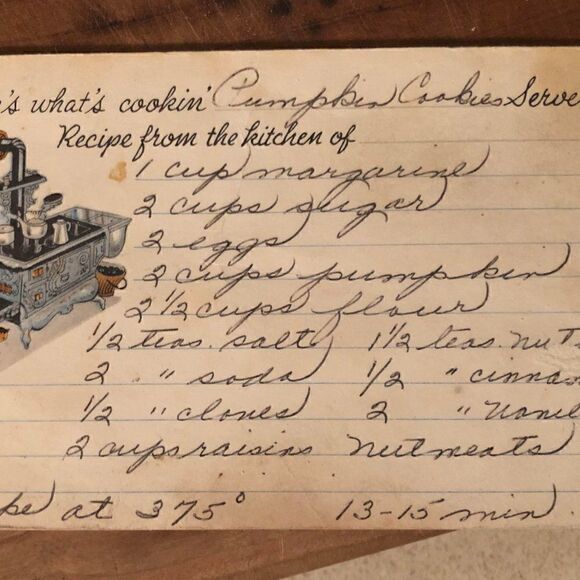 's what's cookin' Pumpkin Cookies Serve
Recipe from the kitchen of
1 cup margarine
2 cups sugar
2 eggs
2 cups pumpkin
2 1/2 cups flour
1/2 teas. salt 1 1/2 teas. nut
2 " soda 1/2 " cinna
1/2 " cloves 2 " Vanil
2 cups raisins nutmeats
ke at 375° 13-15 min.